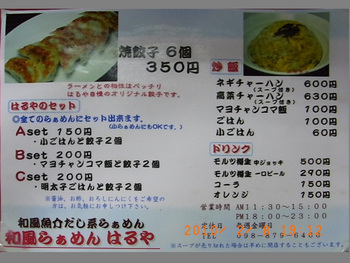 焼餃子 6個
350円
ラーメンとの相性はバッチリ
はるや自慢のオリジナル餃子です。
はるやのセット
◎全てのらぁめんにセット出来ます。
Aset 150円
・小ごはんと餃子2個
Bset 200円
・マヨチャンコマ飯と餃子2個
Cset 200円
・明太子ごはんと餃子2個
※醤油、お酢、おろしにんにくをご希望の
方は、お気軽にお申し下さい。
和風魚介だし系らぁめん
和風らぁめん はるや
炒飯
ネギチャーハン 600円
(スープ付き)
高菜チャーハン 630円
(スープ付き)
マヨチャンコマ飯 700円
ごはん 100円
小ごはん 60円
ドリンク
モルツ樽生 中ジョッキ 500円
モルツ樽生 一口ビール 290円
コーラ 150円
オレンジ 150円
営業時間 AM11:30~15:00
PM18:00~23:00
定休日 毎週金曜日
TEL 098-879-6433
※スープが売り切れた場合は早めに閉店することもございます。